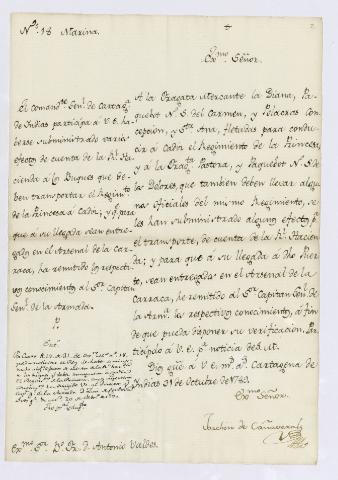 Nº 18 Marina.
Exmo Señor.
El Comandte Genl de Cartagª
de Indias participa á V. E. ha-
berse subministrado varios
efectos de cuenta de la Rl Ha-
cienda á los Buques que de-
ben transportar el Regimto
de la Princesa á Cadiz; y qe para
que á su llegada sean entre-
gados en el Arsenal de la Car-
raca, ha remitido los respecti-
vos conocimientos al Sor Capitan
Genl de la Armada.
A la Fragata Mercante la Diana, Pa-
quebot N. S. del Carmen, y Polacras Con-
cepcion, y Sta Ana, fletadas para condu-
cir á Cadiz el Regimiento de la Princesa,
y á la Fragta Pastora, y Paquebot N. S. de
los Dolores, que tambien deben llevar algu-
nos Oficiales del mismo Regimiento, se
les han subministrado algunos efectos pª
el transporte, de cuenta de la Rl Hacien-
da; y para que á su llegada á dho Puer-
to, sean entregados en el Arsenal de la
Carraca, he remitido al Sor Capitan Genl de
la Armª los respectivos conocimientos, á fin
de que pueda disponer su verificacion. Par-
ticipolo á V. E. pª noticia de S. M.
Dios gue á V. E. ms as Cartagena de
Indias 31 de Octubre de 1783.
Exmo Señor.
Joachin de Cañaveral
Exmo Sor Dn Fr. Dn Antonio Valdes.